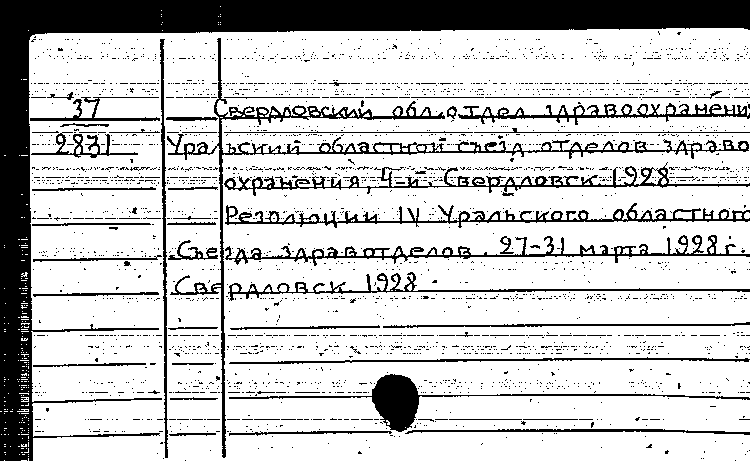 37
2831
Свердловский обл.отдел здравоохранени
Уральский областной съезд отделов здраво
охранения, 4-й. Свердловск 1928
Резолюции IV Уральского областного
Съезда здравотделов. 27-31 марта 1928г.
Свердловск 1928